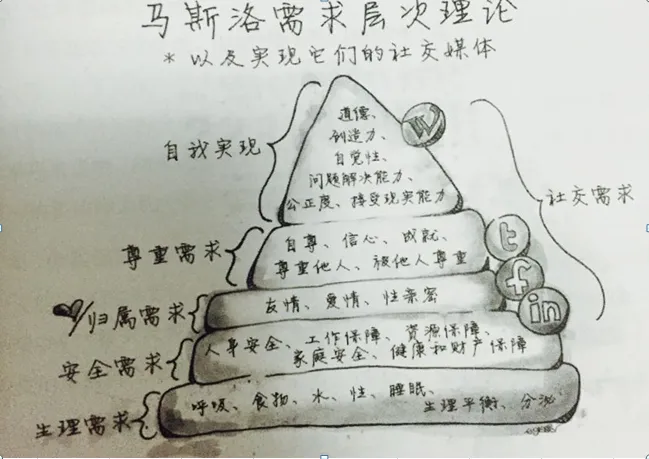 马斯洛需求层次理论
*以及实现它们的社交媒体
自我实现
道德、
创造力、
自觉性、
问题解决能力、
公正度、接受现实能力
W
社交需求
尊重需求
自尊、信心、成就、
尊重他人、被他人尊重
t
f
/归属需求
友情、爱情、性亲密
in
安全需求
人身安全、工作保障、资源保障、
家庭安全、健康和财产保障
生理需求
呼吸、食物、水、性、睡眠、
生理平衡、分泌